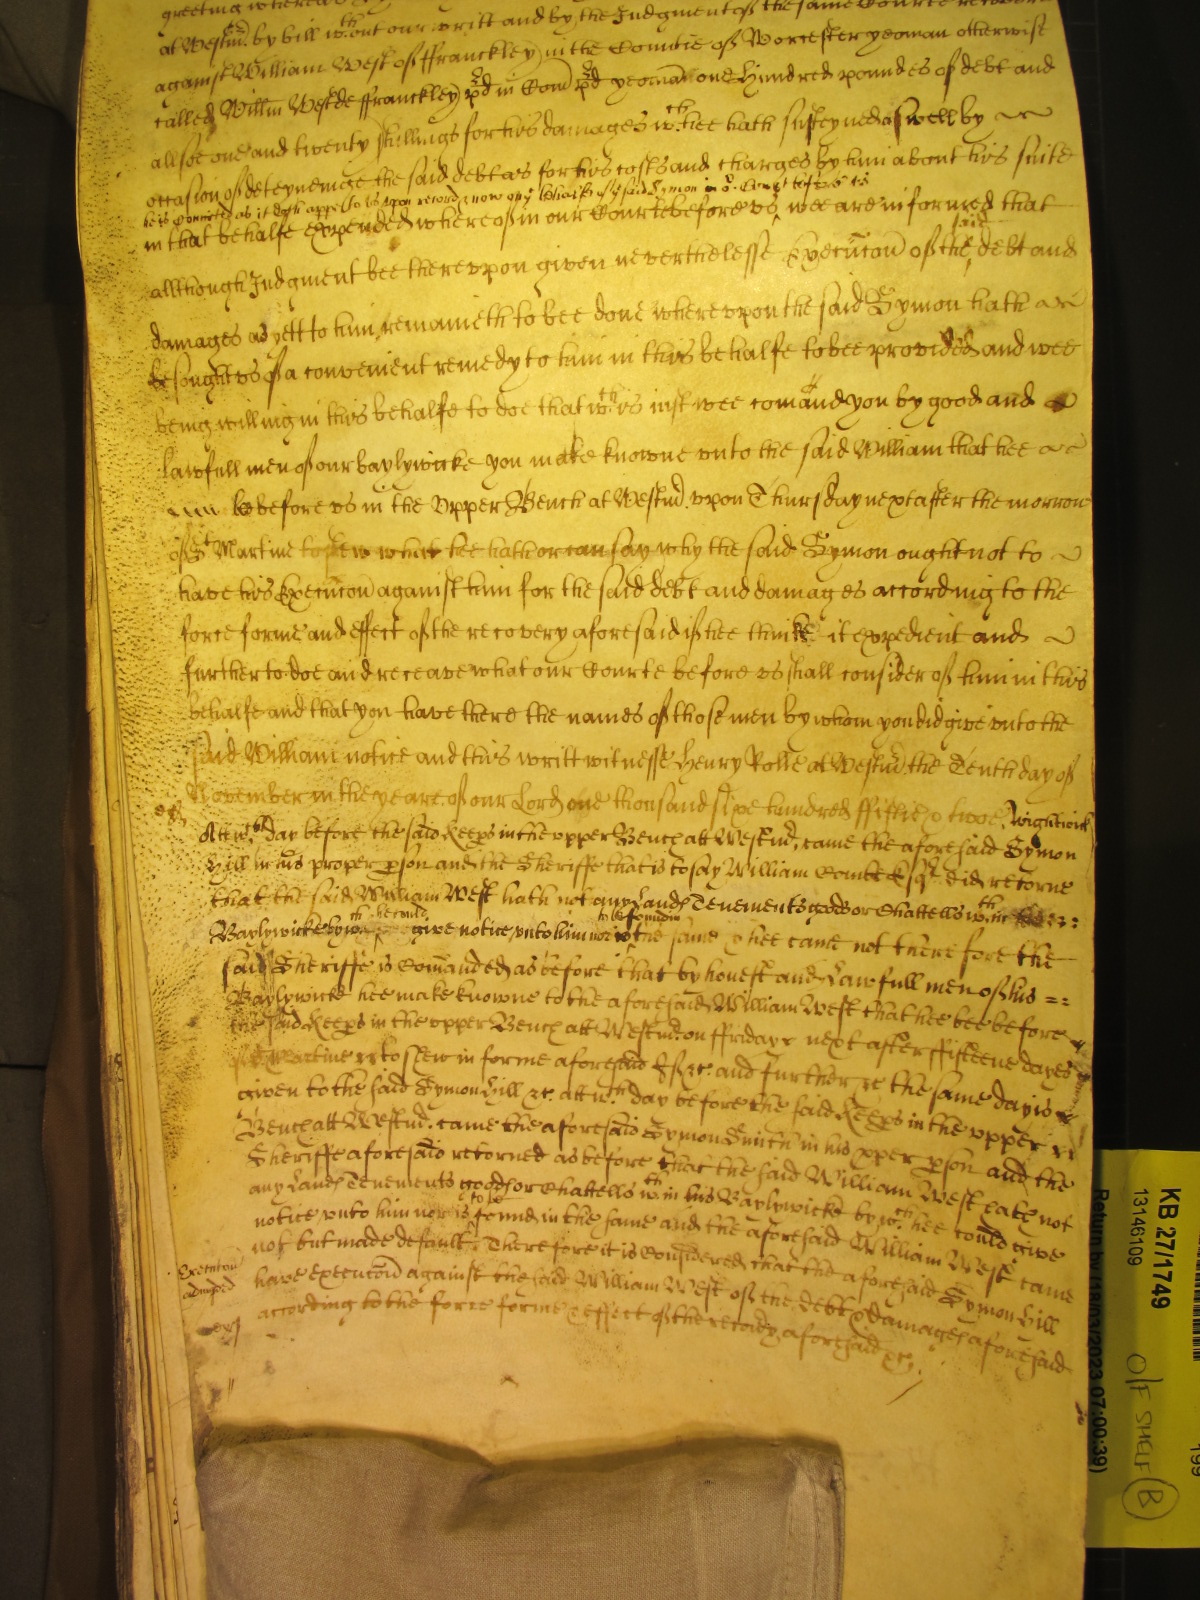 greeting whereas
at Westmr. by bill wthout our writt and by the Judgment of the same Courte recovered
against William West of ffranckley in the Countie of Worcester yeoman otherwise
called Willm West de ffranckley pd in Com pd yeoman one Hundred poundes of debt and
allsoe one and twenty shillings for his damages wch hee hath susteyned aswell by
occasion of deteyneinge the said debt as for his costs and charges by him about his suite
he is convicted as it doth appeare to us upon record & now on ye behalfe of ye said Symon in or Court before us
in that behalfe expended whereof in our Courte before us, wee are informed that
allthough Judgment bee thereupon given neverthelesse Execucon of the said debt and
damages as yett to him remaineth to bee done whereupon the said Symon hath
besought us of a convenient remedy to him in this behalfe to bee provided and wee
being willing in this behalfe to doe that wch is just wee comaund you by good and
lawfull men of our baylywicke you make knowne unto the said William that hee
bee before us in the Upper Bench at Westmr. upon Thursday next after the morrow
of St Martine to shew what hee hath or can say why the said Symon ought not to
have his Execucon against him for the said debt and damages according to the
force forme and effect of the recovery aforesaid if hee thinke it expedient and
further to doe and receave what our Courte before us shall consider of him in this
behalfe and that you have there the names of those men by whom you did give unto the
said William notice and this writt witnesse Henry Rolle at Westmr. the Tenth day of
November in the yeare of our Lord one thousand sixe hundred ffiftie & twoe. Wightwick
Att wch day before the said Keeps in the upper Bench att Westmr. came the aforesaid Symon
Hill in his proper pson and the Sheriffe that is to say William Combe Esqr. did retorne
that the said William West hath not any Lands Tenements goods or Chattells wthin his
Baylywicke by wch hee could give notice unto him nor is to be found in the same & hee came not therefore the
said Sheriffe is Comanded as before that by honest and Lawfull men of his
Baylywicke hee make knowne to the aforesaid William West that hee bee before
the said Keeps in the upper Bench att Westmr. on ffriday next after ffifteene dayes
of St Martine &c to shew in forme aforesaid If &c. and further &c the same day is
given to the said Symon Hill &c. att wch day before the said Keeps in the upper
Bench att Westmr. came the aforesaid Symon Smith in his pper pson and the
Sheriffe aforesaid retorned as before that the said William West hath not
any Lands Tenements goods or Chattells wthin his Baylywicke by wch hee could give
notice unto him nor is to be found in the same and the aforesaid William West came
not but made default. Therefore it is Considered that the aforesaid Symon Hill
Execucon
adiudged
have execucon against the said William West of the debt & damages aforesaid
according to the force forme & effect of the recovery aforesaid &c.
KB 27/1749
13146109
Return by (18/03/2023 07:00:39)
O/F SHELF B
199